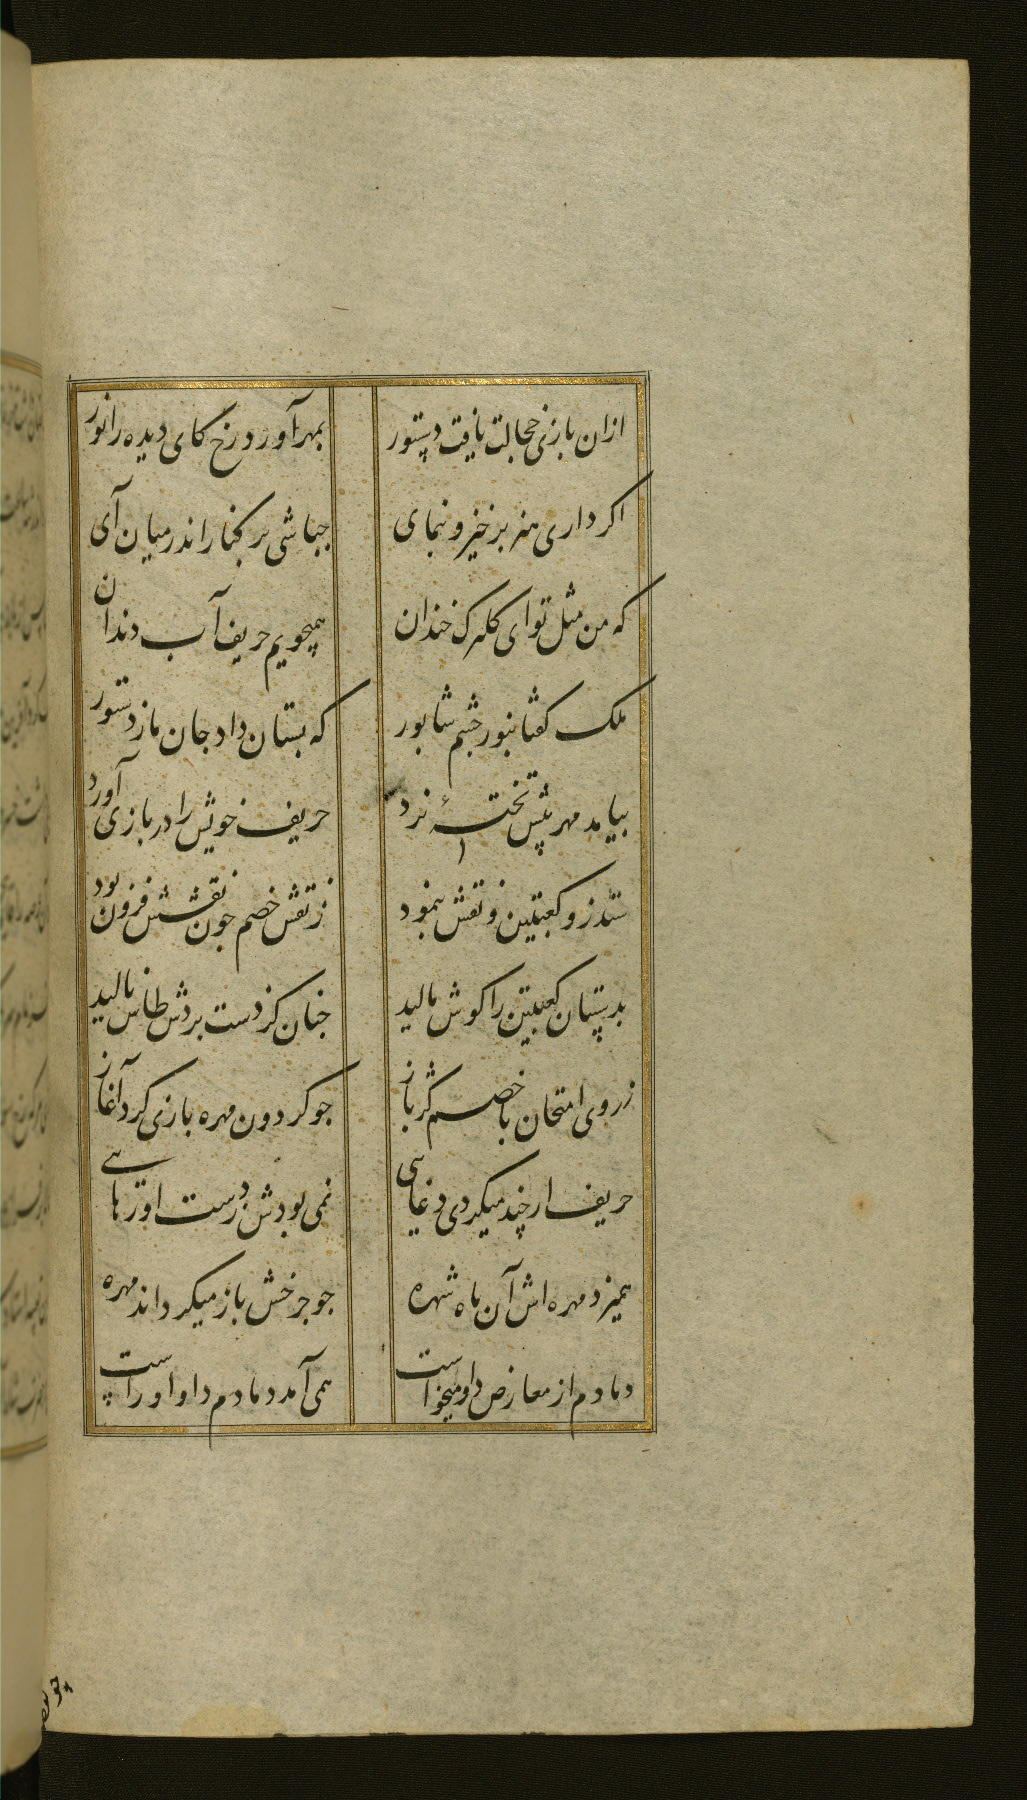 ازان بازی خجالت یافت دستور
بمهر آورد رخ کای دیده را نور
اکر داری هنر برخیز و بنمای
چباشی بر کنار اندر میان آی
که من مثل تو ای کلبرک خندان
همیجویم حریف آب دندان
ملک کفتا بنور چشم شابور
که بستان داد جان ما ز دستور
بیامد مهر پیش تختهٔ نرد
حریف خویش را در بازی آورد
ستد زو کعبتین و نقش بنمود
ز نقش خصم جون نقشش فزون بود
بدستان کعبتین را کوش مالید
جنان کز دست بردش طاس نالید
ز روی امتحان با خصم کژباز
جو کردون مهره بازی کرد آغاز
حریف ار چند میکردی دغایی
نمی بودش ز دست او رهایی
همیزد مهره اش آن ماه شهره
جو جرخش باز میکرداند مهره
دمادم از معارض داو میخواست
همی آمد دمادم داو او راست